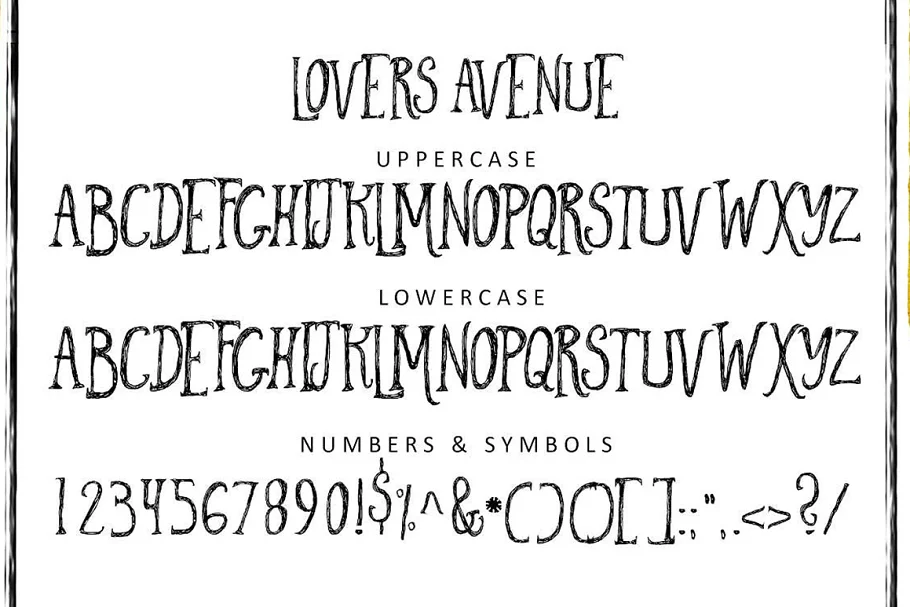 LOVERS AVENUE
UPPERCASE
ABCDEFGHIJKLMNOPQRSTUVWXYZ
LOWERCASE
ABCDEFGHIJKLMNOPQRSTUVWXYZ
NUMBERS & SYMBOLS
1234567890!$%^&*(){}[]:;",.<>?/